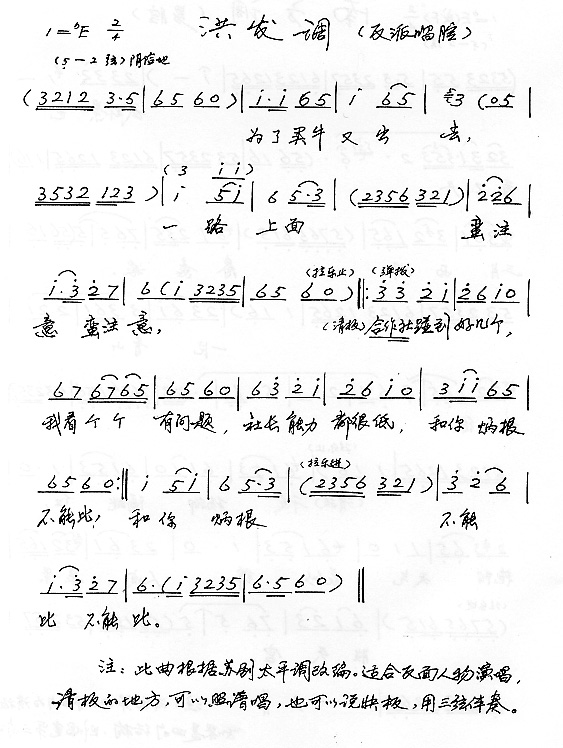 1=ᵇE 2/4 洪发调（反派唱腔）
(5—2弦)
(3212 3·5|65 60)|i·i 65|i 65|3 (05|
为了买牛 又 出 去,
(3 i i)
3532 123)|i 5i|6 5·3|(2356 321)|226|
一 路 上面 蛮注
(拉乐止) (弹板)
i·3 27|6(i 3235|65 60)‖:33 2i|26 i0|
意 蛮注 意, (清板)合作社碰到好几个,
67 6765|6560|63 2i|26 i0|3ii 65|
我看个个 有问题, 社长能力 都很低, 和你 炳根
(拉乐进)
6560:‖i 5i|6 5·3|(2356 321)|3 26|
不能比! 和你 炳根 不能
i·3 27|6·(i 3235|6·5 60)‖
比 不能 比。
注：此曲根据苏剧太平调改编。适合反面人物演唱,
清板的地方,可以照谱唱,也可以说快板,用三弦伴奏。